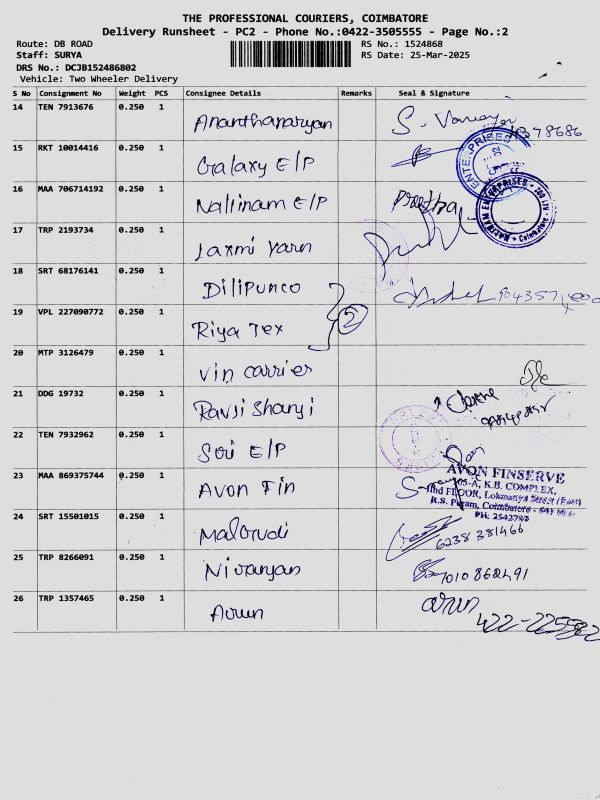 THE PROFESSIONAL COURIERS, COIMBATORE
Delivery Runsheet - PC2 - Phone No.:0422-3505555 - Page No.:2
Route: DB ROAD RS No.: 1524868
Staff: SURYA RS Date: 25-Mar-2025
DRS No.: DCJB152486802
Vehicle: Two Wheeler Delivery
S No Consignment No Weight PCS Consignee Details Remarks Seal & Signature
14 TEN 7913676 0.250 1 Ananthanaryan
78686
15 RKT 10014416 0.250 1 Galaxy E/P
ENTERPRISES
16 MAA 706714192 0.250 1 Nallinam E/P Preetha
NALLINAM ENTERPRISES
Coimbatore
17 TRP 2193734 0.250 1 Laxmi yarn
18 SRT 68176141 0.250 1 Dilipunco
19 VPL 227090772 0.250 1 Riya Tex 2
20 MTP 3126479 0.250 1 vin carrier
21 DDG 19732 0.250 1 Ravji Shanji
22 TEN 7932962 0.250 1 Sri E/P
23 MAA 869375744 0.250 1 Avon Fin
AVON FINSERVE
105-A, K.B. COMPLEX,
IInd FLOOR, Lokmanya Street (East)
R.S. Puram, Coimbatore - 641 002.
24 SRT 15501015 0.250 1 6238 381466
25 TRP 8266091 0.250 1 Niranjan 7010862491
26 TRP 1357465 0.250 1 Arun arun